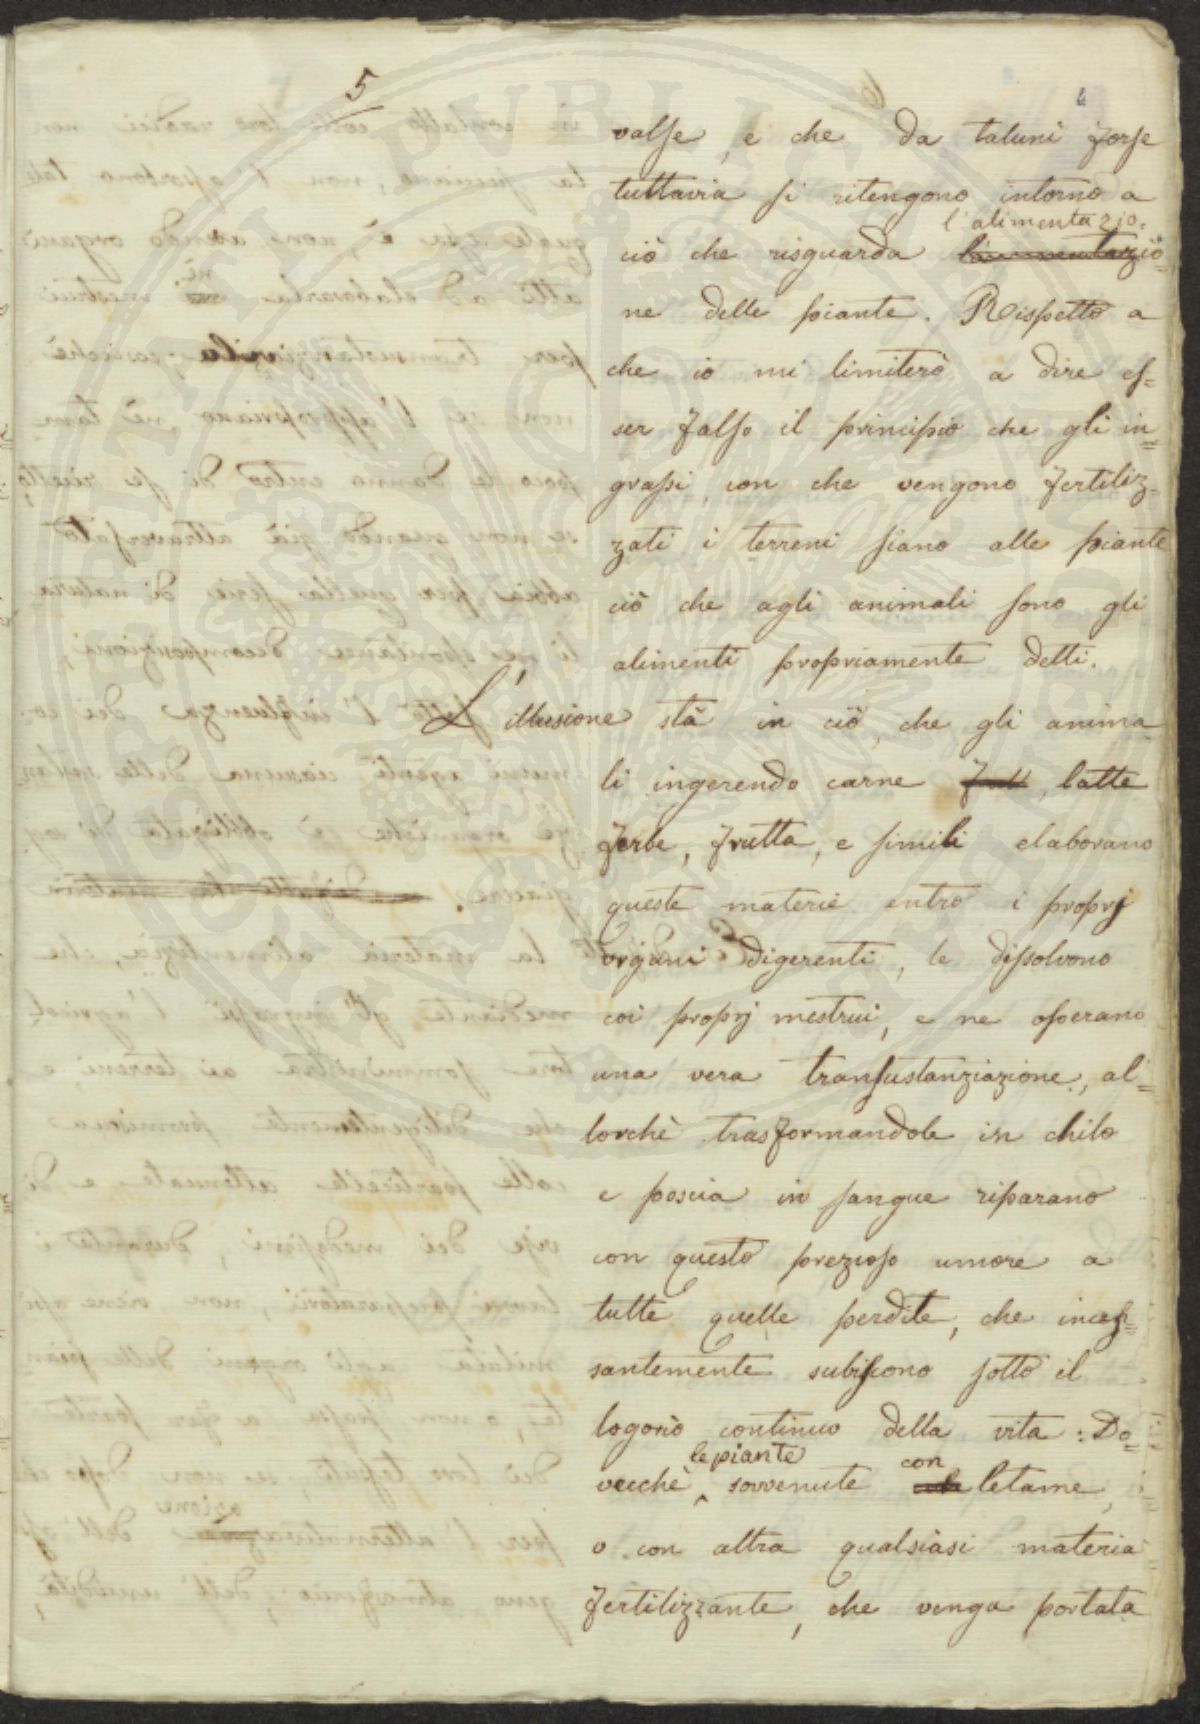 5
valse, e che da taluni forse
tuttavia si ritengono intorno a
l'alimentazio=
ciò che risguarda
ne delle piante. Rispetto a
che io mi limiterò a dire es=
ser falso il principio che gli in=
grassi, con che vengono fertiliz=
zati i terreni siano alle piante
ciò che agli animali sono gli
alimenti propriamente detti.
L'illusione stà in ciò, che gli anima=
li ingerendo carne, latte
ferbe, frutta, e simili elaborano
queste materie entro i proprj
organi digerenti, le dissolvono
coi proprj mestrui, e ne operano
una vera transustanziazione, al=
lorchè trasformandole in chilo
e poscia in sangue riparano
con questo prezioso umore a
tutte quelle perdite, che inces=
santemente subiscono sotto il
logorio continuo della vita: Do=
le piante con
vecchè sovvenute letame,
o con altra qualsiasi materia
fertilizzante, che venga portata